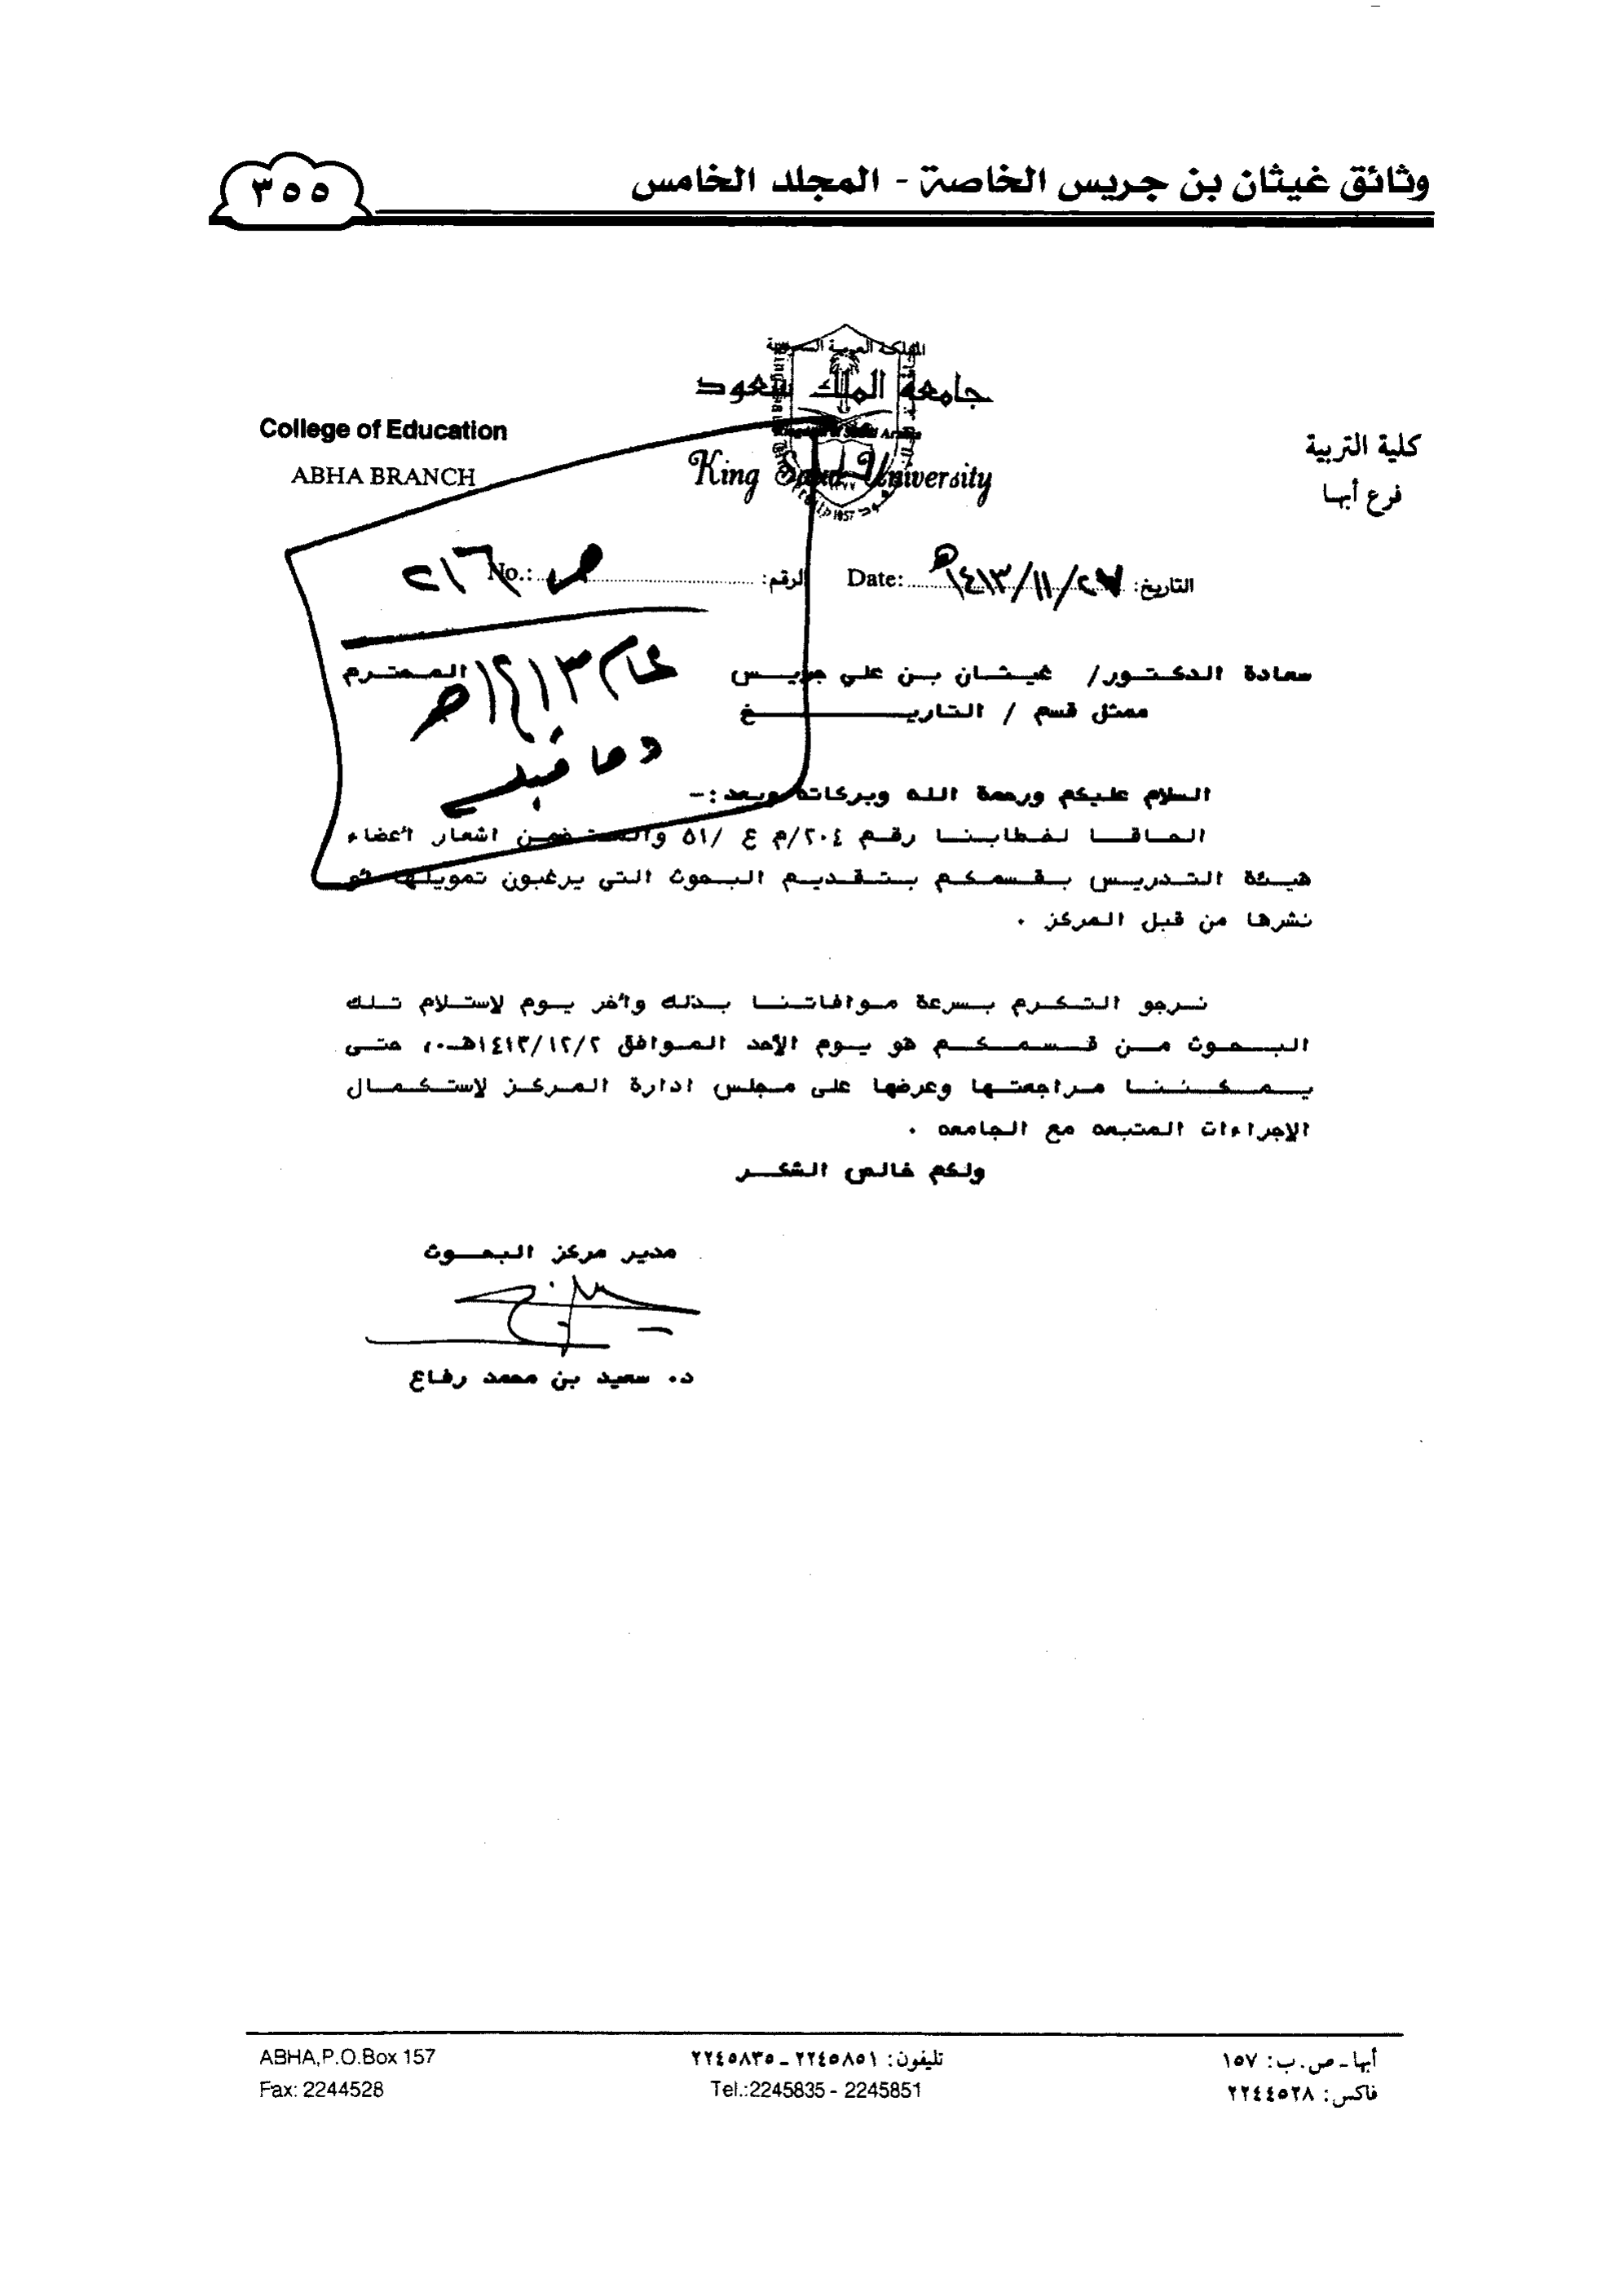 وثائق غيثان بن جريس الخاصة - المجلد الخامس
٣٥٥
المملكة العربية السعودية
جامعة الملك سعود
King Saud University
1957
كلية التربية
فرع أبها
College of Education
ABHA BRANCH
التاريخ: ١٤١٣/١١/٢٧هـ Date:
الرقم: No.:
ص ٢١٦
عام ١٤١٣هـ
وما قبله
سعادة الدكتور/ غيثان بن علي جريس المحترم
ممثل قسم / التاريخ
السلام عليكم ورحمة الله وبركاته وبعد :-
الحاقا لخطابنا رقم ٢٠٤/م ع /٥١ والمتضمن اشعار أعضاء
هيئة التدريس بقسمكم بتقديم البحوث التي يرغبون تمويلها أو
نشرها من قبل المركز .
نرجو التكرم بسرعة موافاتنا بذلك وأخر يوم لإستلام تلك
البحوث من قسمكم هو يوم الأحد الموافق ١٤١٣/١٢/٢هـ.، حتى
يمكننا مراجعتها وعرضها على مجلس ادارة المركز لإستكمال
الإجراءات المتبعه مع الجامعه .
ولكم خالص الشكر
مدير مركز البحوث
د. سعيد بن محمد رفاع
أبها ـ ص.ب: ١٥٧
فاكس: ٢٢٤٤٥٢٨
تليفون: ٢٢٤٥٨٥١ ـ ٢٢٤٥٨٣٥
Tel.:2245835 - 2245851
ABHA,P.O.Box 157
Fax: 2244528